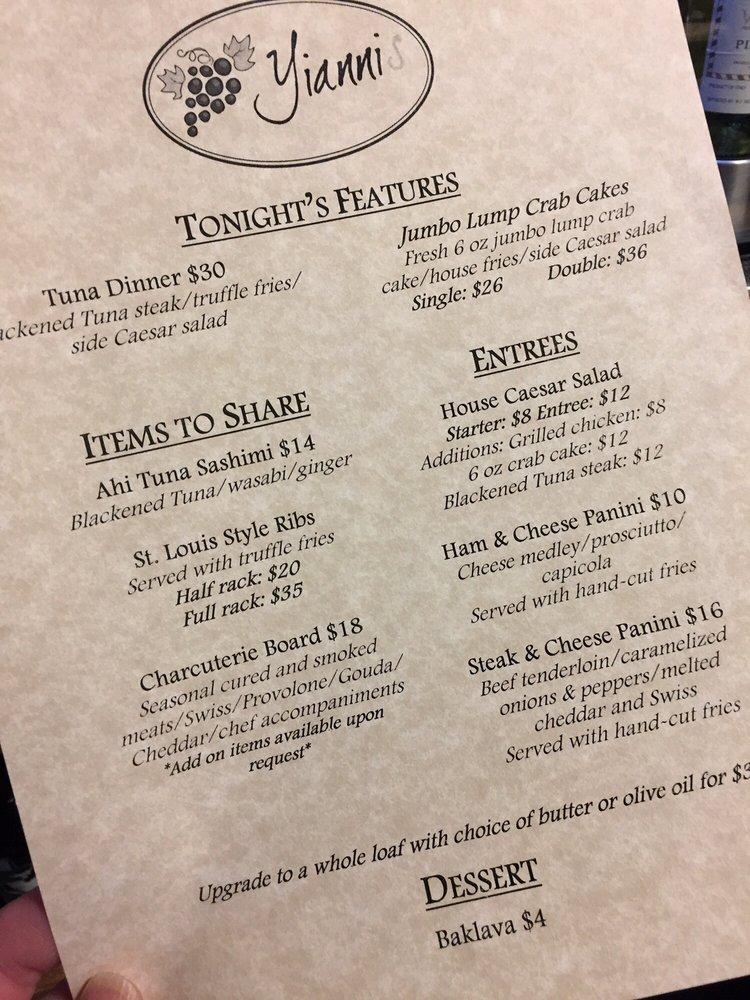 Yiannis
TONIGHT'S FEATURES
Tuna Dinner $30
Tuna steak/truffle fries/
side Caesar salad
Jumbo Lump Crab Cakes
Fresh 6 oz jumbo lump crab
cake/house fries/side Caesar salad
Single: $26 Double: $36
ITEMS TO SHARE
Ahi Tuna Sashimi $14
Blackened Tuna/wasabi/ginger
St. Louis Style Ribs
Served with truffle fries
Half rack: $20
Full rack: $35
Charcuterie Board $18
Seasonal cured and smoked
meats/Swiss/Provolone/Gouda/
Cheddar/chef accompaniments
*Add on items available upon
request*
ENTREES
House Caesar Salad
Starter: $8 Entree: $12
Additions: Grilled chicken: $8
6 oz crab cake: $12
Blackened Tuna steak: $12
Ham & Cheese Panini $10
Cheese medley/prosciutto/
capicola
Served with hand-cut fries
Steak & Cheese Panini $16
Beef tenderloin/caramelized
onions & peppers/melted
cheddar and Swiss
Served with hand-cut fries
Upgrade to a whole loaf with choice of butter or olive oil for $3
DESSERT
Baklava $4